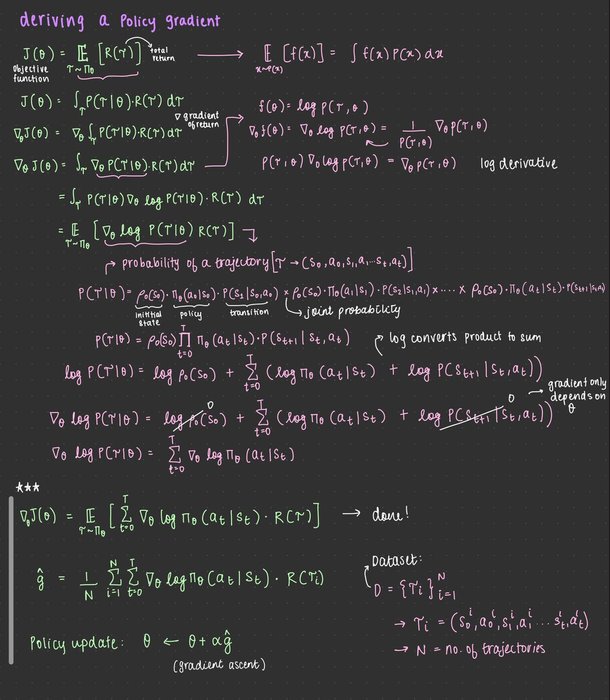 deriving a Policy gradient
J(θ) = 𝔼_{τ~Πθ} [R(τ)] → total return ⟶ 𝔼_{x~P(x)} [f(x)] = ∫ f(x) P(x) dx
Objective function
J(θ) = ∫_τ P(τ|θ)·R(τ) dτ
∇θJ(θ) = ∇θ ∫_τ P(τ|θ)·R(τ) dτ
∇ gradient of return
∇θ J(θ) = ∫_τ ∇θ P(τ|θ)·R(τ) dτ
f(θ) = log P(τ,θ)
∇θf(θ) = ∇θ log P(τ,θ) = 1/P(τ,θ) ∇θ P(τ,θ)
P(τ,θ) ∇θ log P(τ,θ) = ∇θ P(τ,θ) log derivative
= ∫_τ P(τ|θ) ∇θ log P(τ|θ) · R(τ) dτ
= 𝔼_{τ~Πθ} [∇θ log P(τ|θ) R(τ)]
probability of a trajectory [τ → (s₀, a₀, s₁, a₁ ... s_t, a_t)]
P(τ|θ) = ρ₀(s₀) · Πθ(a₀|s₀) · P(s₁|s₀,a₀) × ρ₀(s₀) · Πθ(a₁|s₁) · P(s₂|s₁,a₁) × .... × ρ₀(s₀) · Πθ(a_t|s_t) · P(s_{t+1}|s_t,a_t)
inititial state policy transition joint probability
P(τ|θ) = ρ₀(s₀) ∏_{t=0}^{T} Πθ(a_t|s_t) · P(s_{t+1}|s_t,a_t)
log converts product to sum
log P(τ|θ) = log ρ₀(s₀) + Σ_{t=0}^{T} (log Πθ(a_t|s_t) + log P(s_{t+1}|s_t,a_t))
gradient only depends on θ
∇θ log P(τ|θ) = log ρ₀(s₀) 0 + Σ_{t=0}^{T} (log Πθ(a_t|s_t) + log P(s_{t+1}|s_t,a_t)) 0
∇θ log P(τ|θ) = Σ_{t=0}^{T} ∇θ log Πθ(a_t|s_t)
***
∇θJ(θ) = 𝔼_{τ~Πθ} [Σ_{t=0}^{T} ∇θ log Πθ(a_t|s_t) · R(τ)] → done!
ĝ = 1/N Σ_{i=1}^{N} Σ_{t=0}^{T} ∇θ log Πθ(a_t|s_t) · R(τᵢ)
Dataset:
D = {τᵢ}_{i=1}^{N}
→ τᵢ = (s₀ⁱ, a₀ⁱ, s₁ⁱ, a₁ⁱ ... s_tⁱ, a_tⁱ)
→ N = no. of trajectories
Policy update: θ ← θ + αĝ
(gradient ascent)